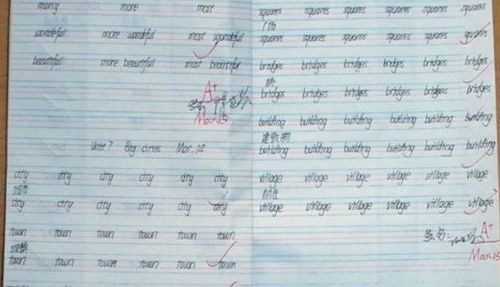 many more most
wonderful more wonderful most wonderful
beautiful more beautiful most beautiful
A+
Mar.15
Unit 7 Big cities Mar. 12
city city city city city
city city city city city
town town town town town
town town town town town
squares squares squares squares squares squares
广场
squares squares squares squares squares squares
bridges bridges bridges bridges bridges bridges
桥
bridges bridges bridges bridges bridges bridges
building building building building building building
建筑物
building building building building building building
village village village village village village
村庄
village village village village village village
A+
Mar.15